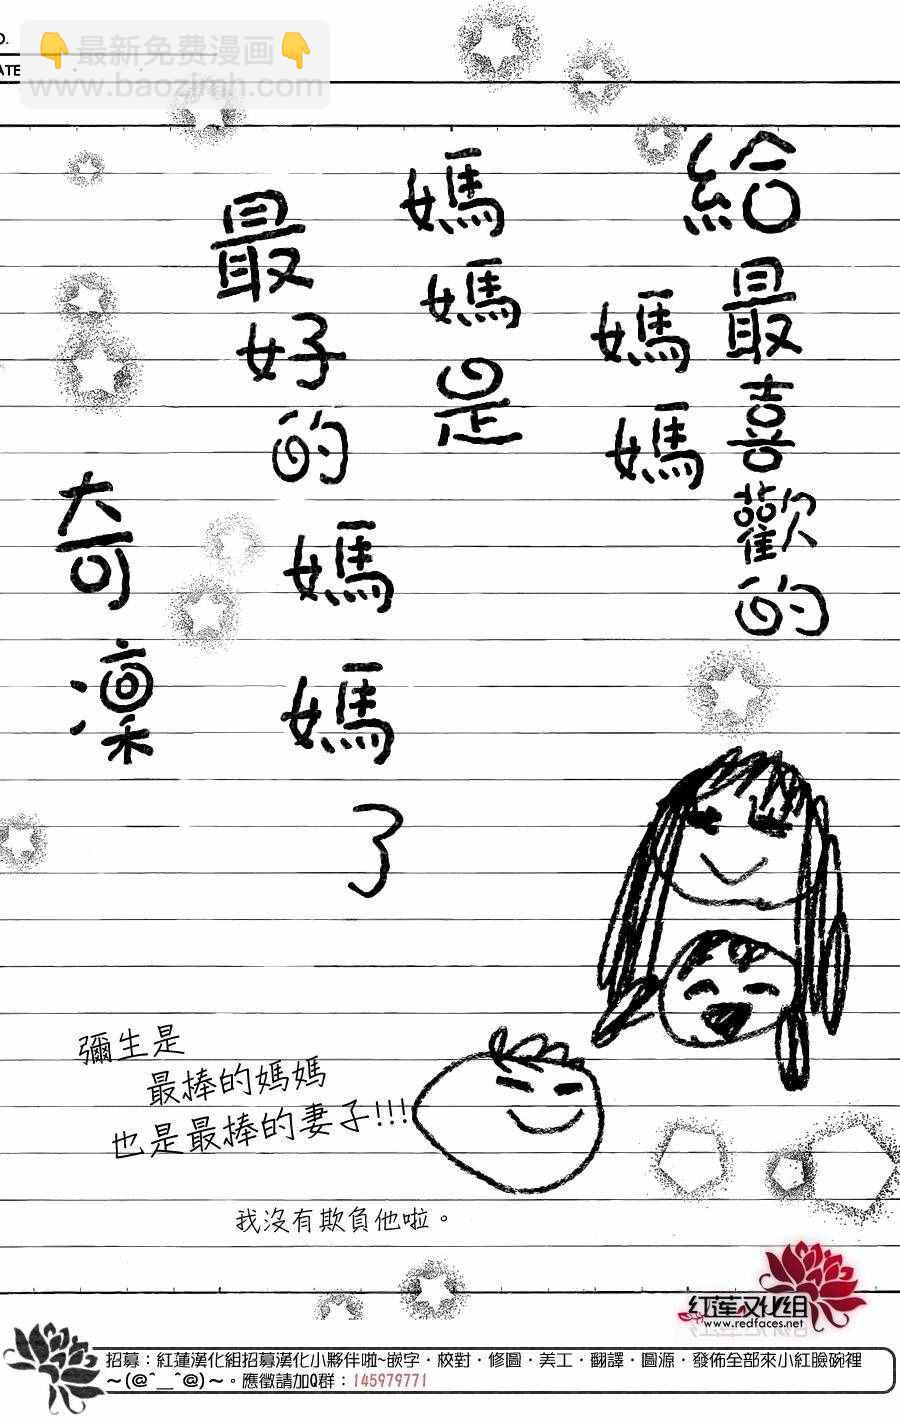 O.
ATE
最新免費漫画
www.baozimh.com
給最喜歡的
媽媽
媽媽是
最好的
媽媽了
奇凜
彌生是
最捧的媽媽
也是最捧的妻子!!!
我沒有欺負他啦。
紅蓮文化組
www.redfaces.net
招募：紅蓮漢化組招募漢化小夥伴啦~嵌字·校對·修圖·美工·翻譯·圖源·發佈全部來小紅臉碗裡
~(@^__^@)~。應徵請加Q群：145979771